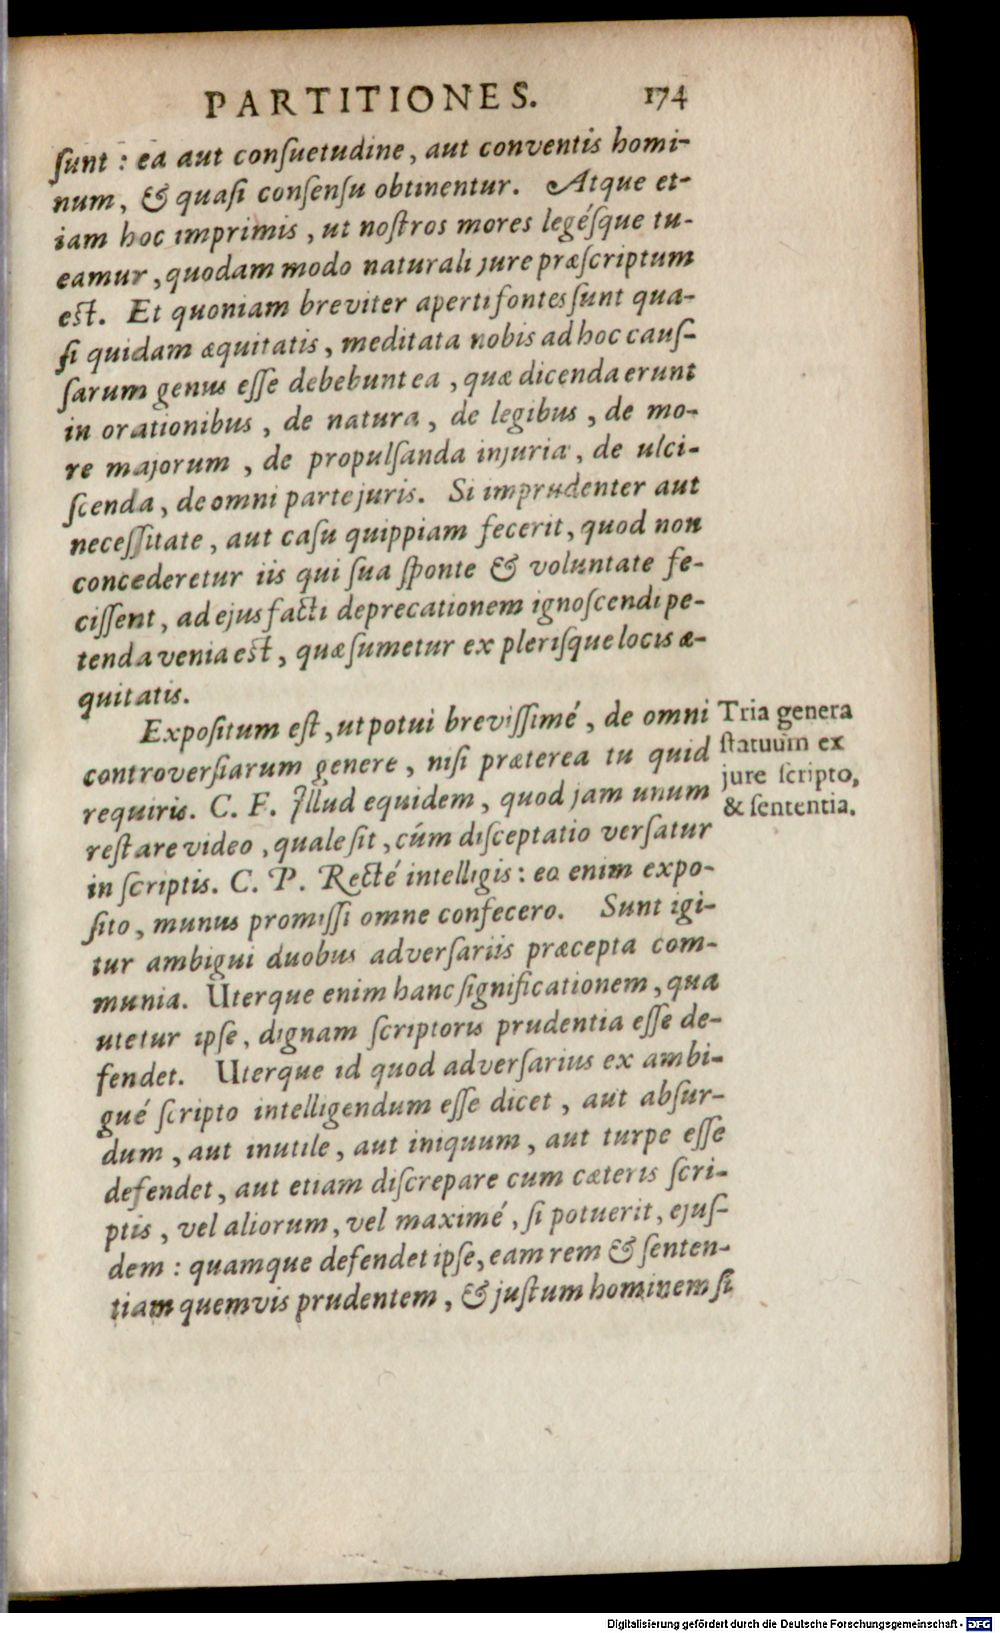 PARTITIONES. 174
ſunt : ea aut conſuetudine, aut conventis homi-
num, & quaſi conſenſu obtinentur. Atque et-
iam hoc imprimis, ut noſtros mores legéſque tu-
eamur, quodam modo naturali jure præſcriptum
eſt. Et quoniam breviter aperti fontes ſunt qua-
ſi quidam æquitatis, meditata nobis ad hoc cauſ-
ſarum genus eſſe debebunt ea, quæ dicenda erunt
in orationibus, de natura, de legibus, de mo-
re majorum, de propulſanda injuria, de ulci-
ſcenda, de omni parte juris. Si imprudenter aut
neceſſitate, aut caſu quippiam fecerit, quod non
concederetur iis qui ſua ſponte & voluntate fe-
ciſſent, ad ejus facti deprecationem ignoſcendi pe-
tenda venia eſt, quæ ſumetur ex pleriſque locis æ-
quitatis.
Expoſitum eſt, ut potui breviſſimé, de omni
controverſiarum genere, niſi præterea tu quid
requiris. C. F. Illud equidem, quod jam unum
reſtare video, quale ſit, cúm diſceptatio verſatur
in ſcriptis. C. P. Recté intelligis : eo enim expo-
ſito, munus promiſſi omne confecero. Sunt igi-
tur ambigui duobus adverſariis præcepta com-
munia. Uterque enim hanc ſignificationem, qua
utetur ipſe, dignam ſcriptoris prudentia eſſe de-
fendet. Uterque id quod adverſarius ex ambi-
gué ſcripto intelligendum eſſe dicet, aut abſur-
dum, aut inutile, aut iniquum, aut turpe eſſe
defendet, aut etiam diſcrepare cum cæteris ſcri-
ptis, vel aliorum, vel maximé, ſi potuerit, ejuſ-
dem : quamque defendet ipſe, eam rem & ſenten-
tiam quemvis prudentem, & juſtum hominem ſi
Tria genera
ſtatuum ex
jure ſcripto,
& ſententia.
Digitalisierung gefördert durch die Deutsche Forschungsgemeinschaft - DFG